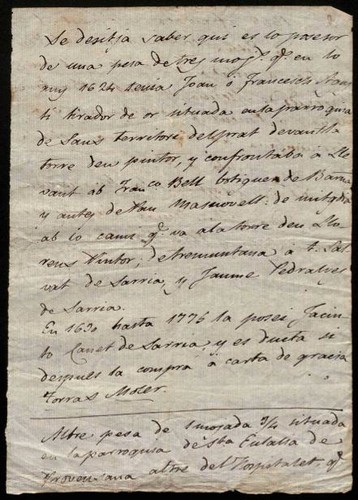 Se desitja saber qui es lo posesor
de una pesa de tres mojs. q.e en lo
any 1624 tenia Joan ó Francesch
ti tirador de or situada en la parroquia
de Sans territori del prat devant la
torre den pintor, y confrontaba a Lle
vant ab Fran.co Bell botiguer de Barna
y antes de Pau Masnovell: de mitgdia
ab lo cami q.e va a la torre den Llo
rens Pintor, de tremuntana á t. Sal
vat de Sarriá, y Jaume Pedralves
de Sarria.
En 1690 hasta 1776 la posei Jacin
to Canet de Sarriá, y es dupta si
després la comprá á carta de gracia
Torras Moler.
Altre pesa de 1 mojada 3/4 situada
en la parroquia de Sta Eulalia de
Provensana altre del Hospitalet, q.e